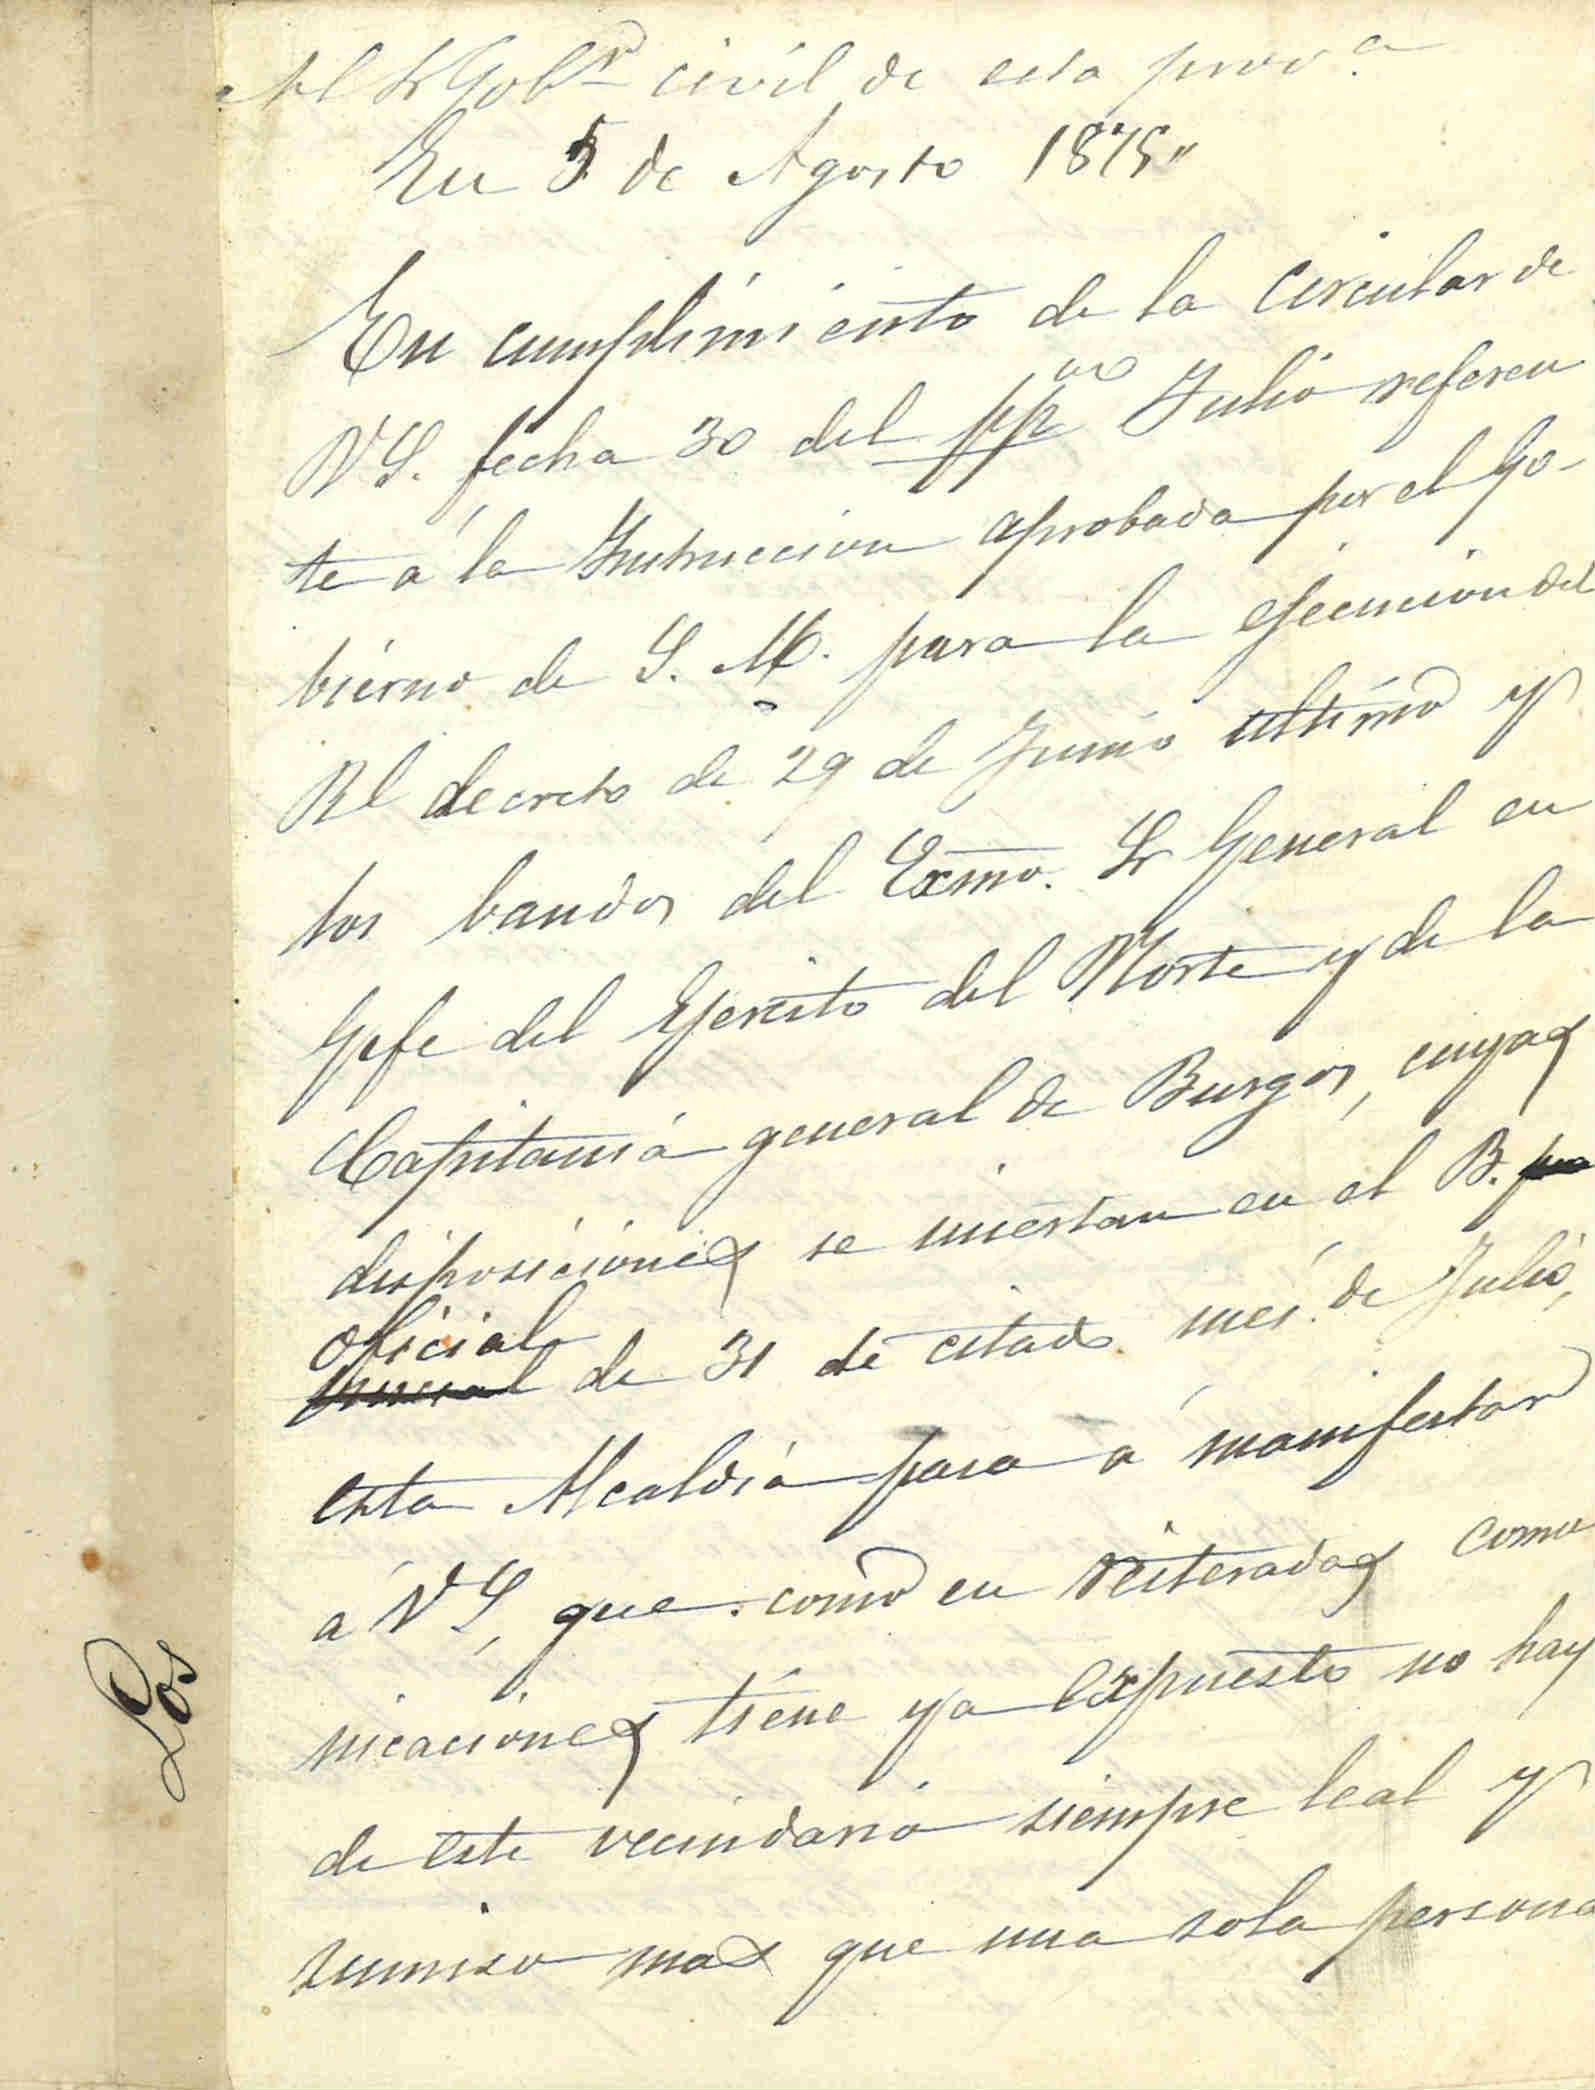 Al Sr Gobr civil de esta prov.a
En 5 de Agosto 1875"
En cumplimiento de la circular de
V S. fecha 30 del ppdo Julio referen
te á la Instruccion aprobada por el Go-
bierno de S. M. para la ejecucion del
Rl decreto de 29 de Junio ultimo y
los bandos del Exmo. Sr General en
Gefe del Ejercito del Norte y de la
Capitania general de Burgos, cuyas
disposiciones se insertan en el B.
oficial de 31 de citado mes de Julio,
esta Alcaldia pasa á manifestar
á V S, que como en reiteradas comu
nicaciones tiene ya expuesto no hay
de este vecindario siempre leal y
sumiso mas que una sola persona
Los